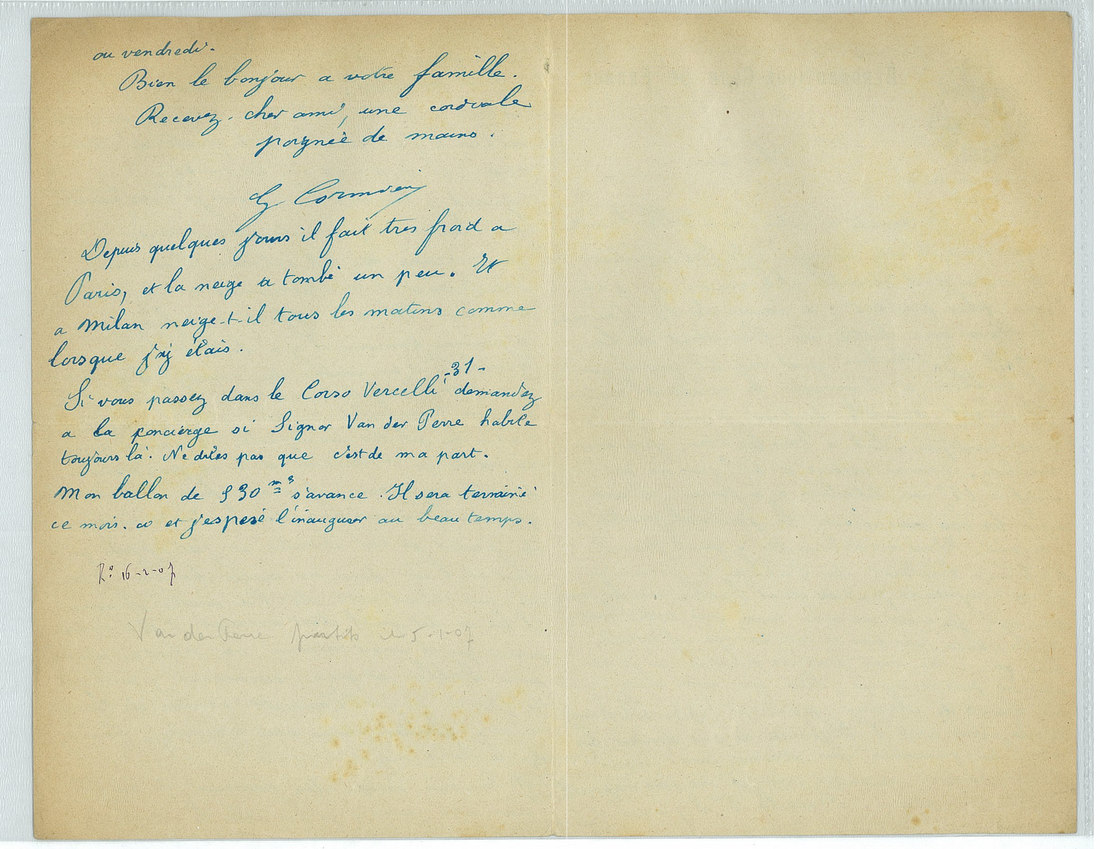 ou vendredi.
Bien le bonjour a votre famille.
Recevez. cher ami, une cordiale
poignée de mains.
G Cormier
Depuis quelques jours il fait tres froid a
Paris, et la neige a tombé un peu. Et
a Milan neige-t-il tous les matins comme
lorsque j'y étais.
-31-
Si vous passez dans le Corso Vercelli demandez
a la concierge si Signor Van der Perre habite
toujours là. Ne dites pas que c'est de ma part.
Mon ballon de 530 m3 s'avance. Il sera terminé
ce mois. et j'espere l'inaugurer au beau temps.
Ro 16-2-07
Van der Perre 5-1-07